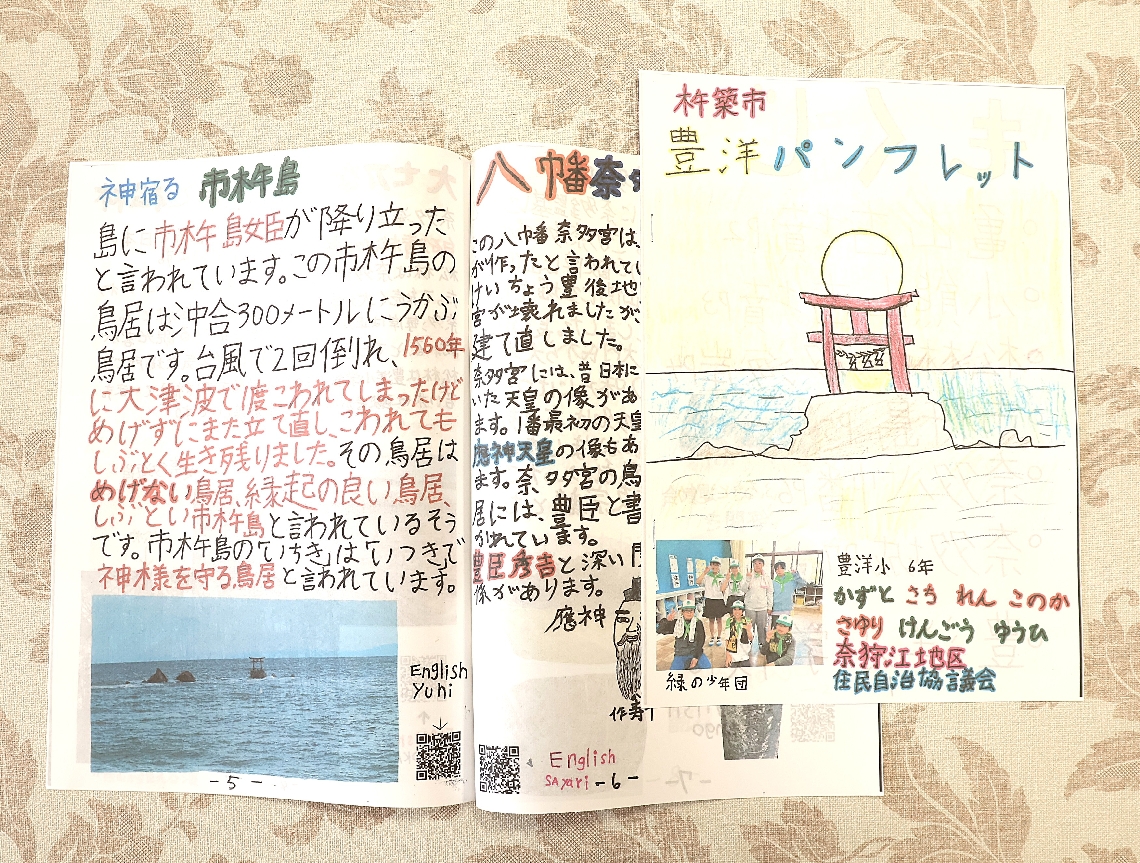 神宿る 市杵島
島に市杵島女臣が降り立った
と言われています。この市杵島の
鳥居は沖合300メートルにうかぶ
鳥居です。台風で2回倒れ、1560年
に大津波で1度こわれてしまったけど
めげずにまた立て直し、こわれても
しぶとく生き残りました。その鳥居は
めげない鳥居、縁起の良い鳥居、
しぶとい市杵島と言われているそう
です。市杵島の「いちき」は「いつき」で
神様を守る鳥居と言われています。
English
Yuhi
-5-
八幡奈
この八幡奈多宮は、
が作ったと言われてい
けいちょう豊後地
宮が壊れましたが、
建て直しました。
奈多宮には、昔日本に
いた天皇の像があ
ます。1番最初の天皇
應神天皇の像もあ
ます。奈多宮の鳥
居には、豊臣と書
かれています。
豊臣秀吉と深い
係があります。
應神
作寿
English
sayari
-6-
杵築市
豊洋パンフレット
豊洋小 6年
かずと さち れん このか
さゆり けんごう ゆうひ
奈狩江地区
住民自治協議会
緑の少年団